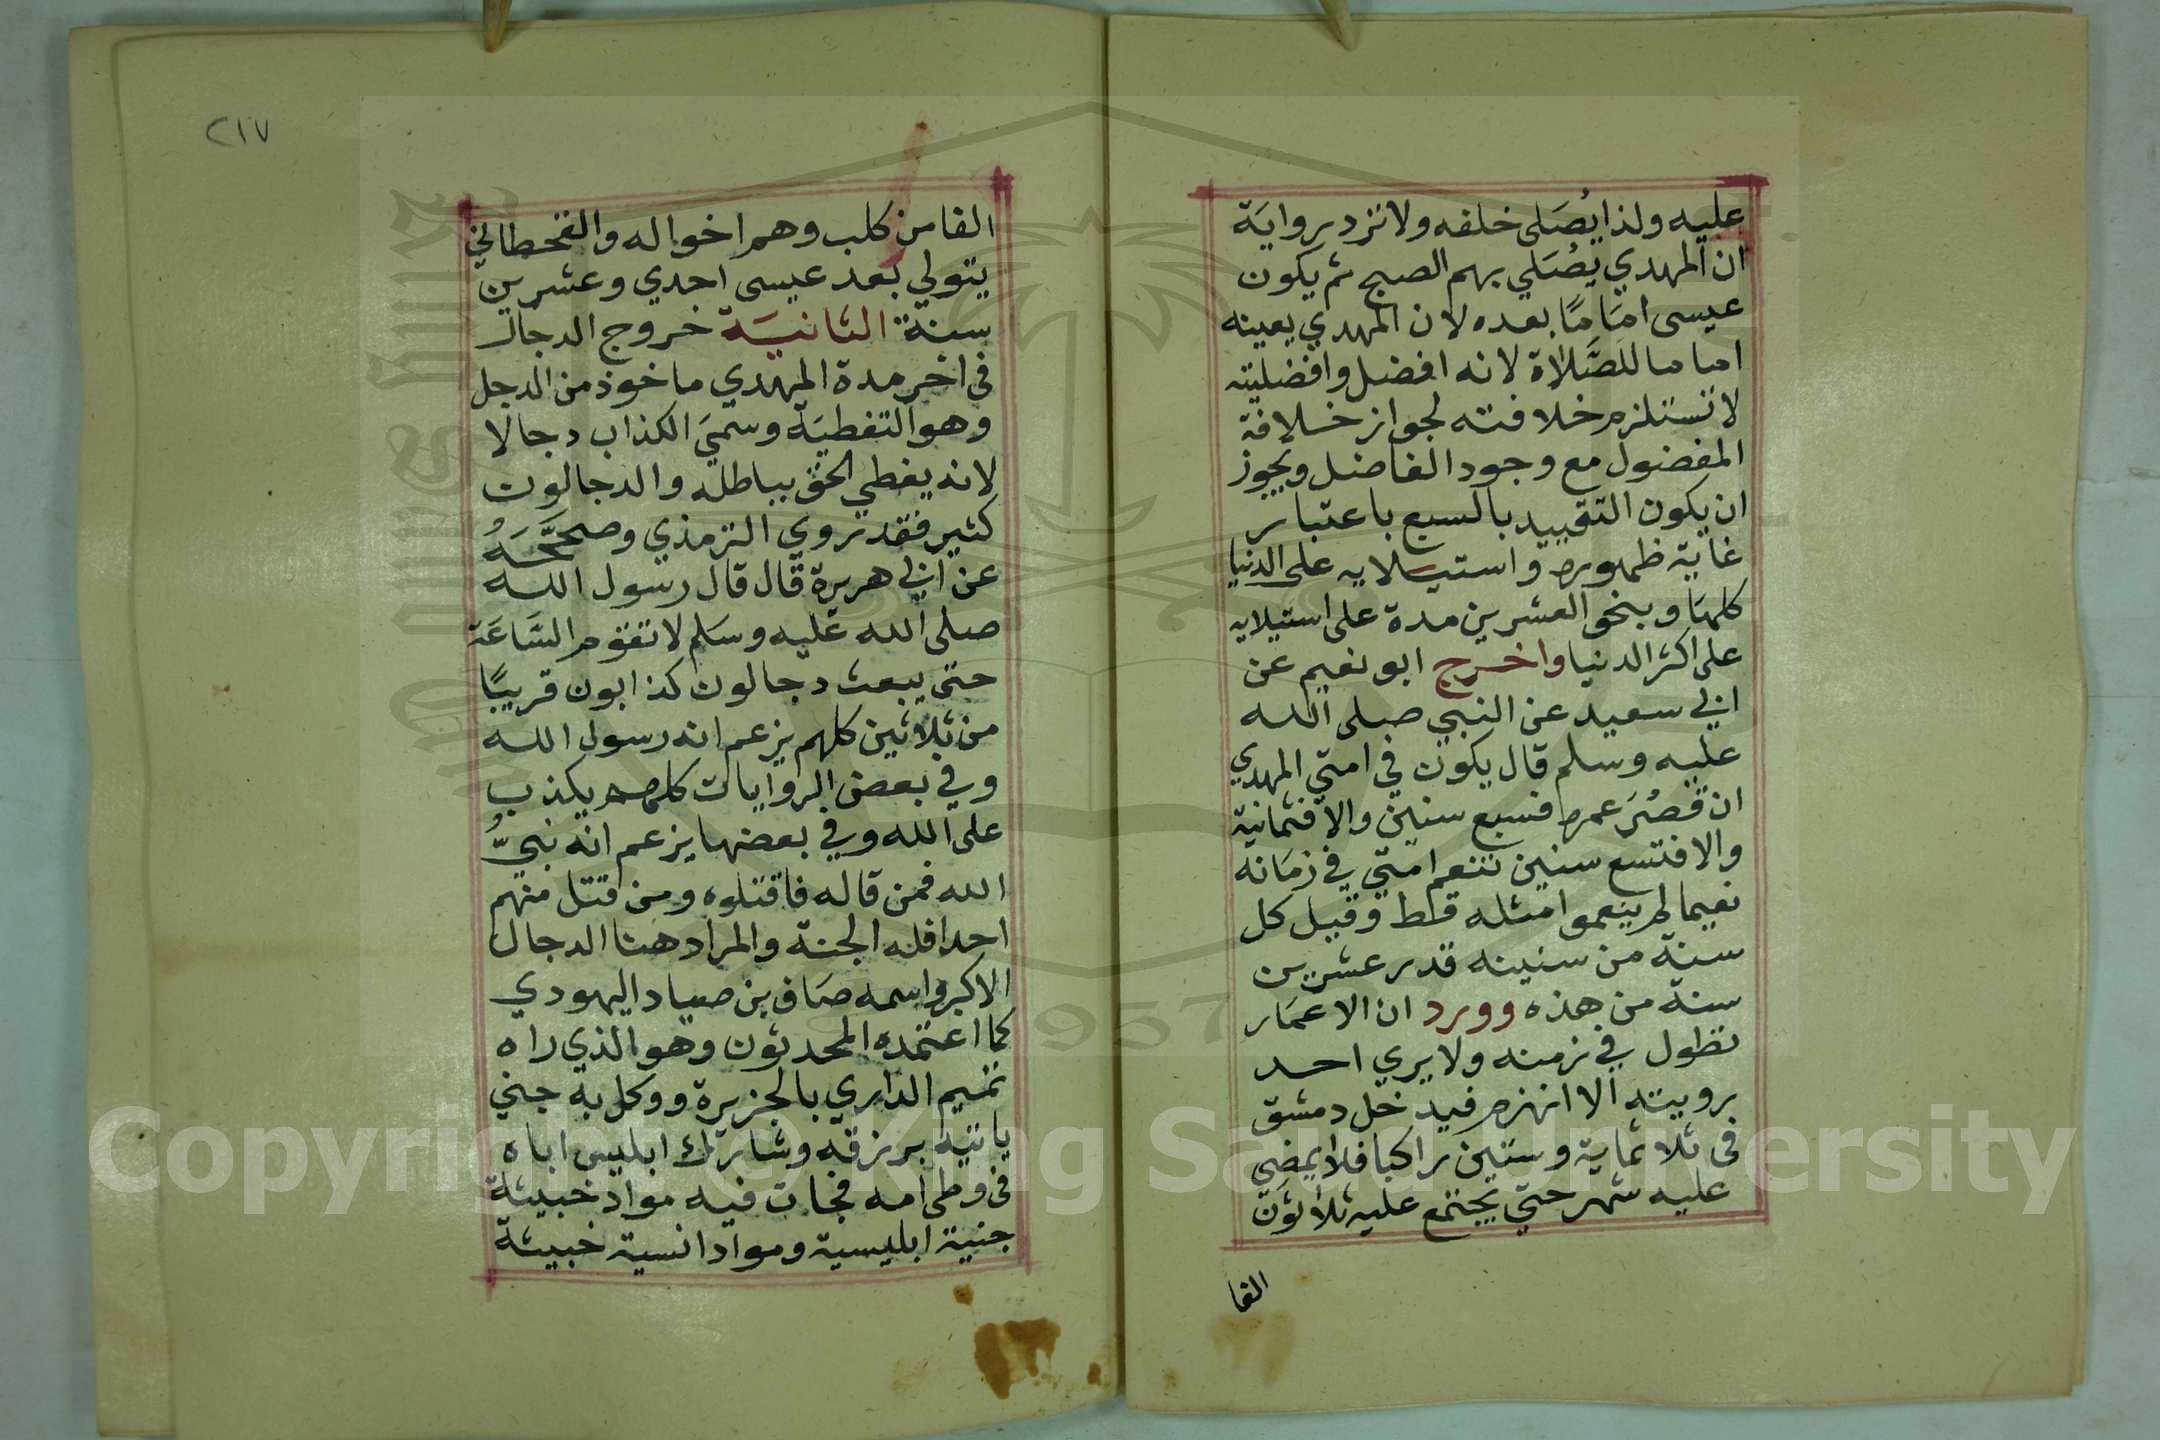 عليه ولذا يُصَلى خلفه ولا تزد برواية
ان المهدي يُصَلي بهم الصبح ثم يكون
عيسى امَامًا بعده لان المهدي يعينه
اماما للصَّلاة لانه افضل وافضليته
لا تستلزم خلافته لجواز خلافة
المفضول مع وجود الفاضل ويجوز
ان يكون التقييد بالسبع باعتبار
غاية ظهوره واستيلايه على الدنيا
كلهَا وبنحو العشرين مدة على استيلايه
على اكثر الدنيا واخرج ابو نعيم عن
ابي سعيد عن النبي صلى الله
عليه وسلم قال يكون في امتي المهدي
ان قصُرَ عمره فسبع سنين والا فثمانية
والا فتسع سنين تتنعم امتي في زمَانه
نعيما لم ينعموا مثله قط وقيل كل
سنة من سنينه قدر عشرين
سنة من هذه وورد ان الاعمَار
تطول في زمنه ولا يري احد
برويته الا انهزم فيدخل دمشق
في ثلاثماية وستين راكبا فلا يمضي
عليه شهر حتي يجتمع عليه ثلاثون
الفا
٢١٧
الفا من كلب وهم اخواله والقحطاني
يتولي بعد عيسى احدي وعشرين
سنة الثانيَة خروج الدجال
في اخر مدة المهدي ماخوذ من الدجل
وهو التغطيَة وسميَ الكذاب دجالا
لانه يغطي الحق بباطله والدجالون
كثير فقد روي الترمذي وصححَّهُ
عن ابي هريرة قال قال رسول الله
صلى الله عليه وسَلم لا تقوم السَّاعَة
حتى يبعث دجالون كذابون قريبًا
من ثلاثين كلهم يزعم انه رسول الله
وفي بعض الروايات كلهم يكذب
على الله وفي بعضها يزعم انه نبيُّ
الله فمن قاله فاقتلوه ومن قتل منهم
احدا فله الجنة والمراد هنا الدجال
الاكبر واسمه صَاف بن صياد اليهودي
كما اعتمده المحدثون وهو الذي راه
تميم الداري بالجزيرة ووكل به جني
ياتيه برزقه وشارك ابليس اباه
في وطى امه فجات فيه مواد خبيثة
جنية ابليسية ومواد انسية خبيثة
Copyright © King Saud University
1957